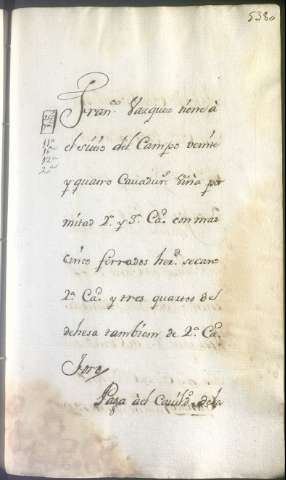 538
Fran.co Vazquez tiene à
el sitio del Campo veinte
y quatro Cavadur.s Viña por
mitad 2.a y 3.a Ca. con mas
cinco ferrados her.l secano
2.a Ca. y tres quartos de
dehesa tambiem de 2.a Ca.
Foro
Paga àel Cavildo dela